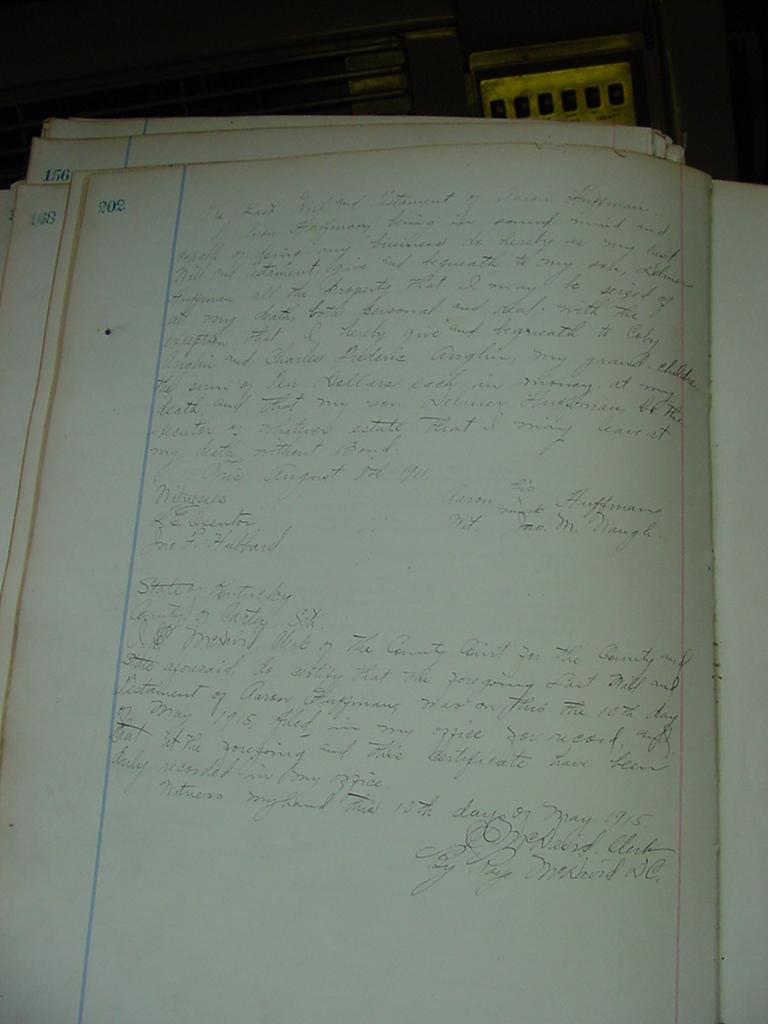 156
168
202
The Last Will and Testament of Aaron Huffman.
I Aaron Huffman, being in sound mind and
capable of doing any business do hereby as my last
Will and testament, give and bequeath to my son, Delmer
Huffman all the property that I may be seized of
at my death, both personal and real. with the
exception that I hereby give and bequeath to Coby
Anglin and Charles Frederic Anglin, my grand-children
the sum of Ten Dollars each in money, at my
death, and that my son Delmer Huffman, be the
executor of whatever estate that I may leave at
my death, without Bond.
This August 8th 1911.
Witnesses
Aaron his mark Huffman
Jno. F. Hubbard
Wit. Jno. M. Waugh.
State of Kentucky
County of Carter Sct.
McDavid Clerk of the County Court for the County and
State aforesaid, do certify that the foregoing Last Will and
Testament of Aaron Huffman, was on this the 10th day
of May 1915, filed in my office for record, and
that the foregoing and this certificate have been
duly recorded in my office.
Witness my hand this 10th day of May 1915.
McDavid, Clerk
By McDavid D.C.